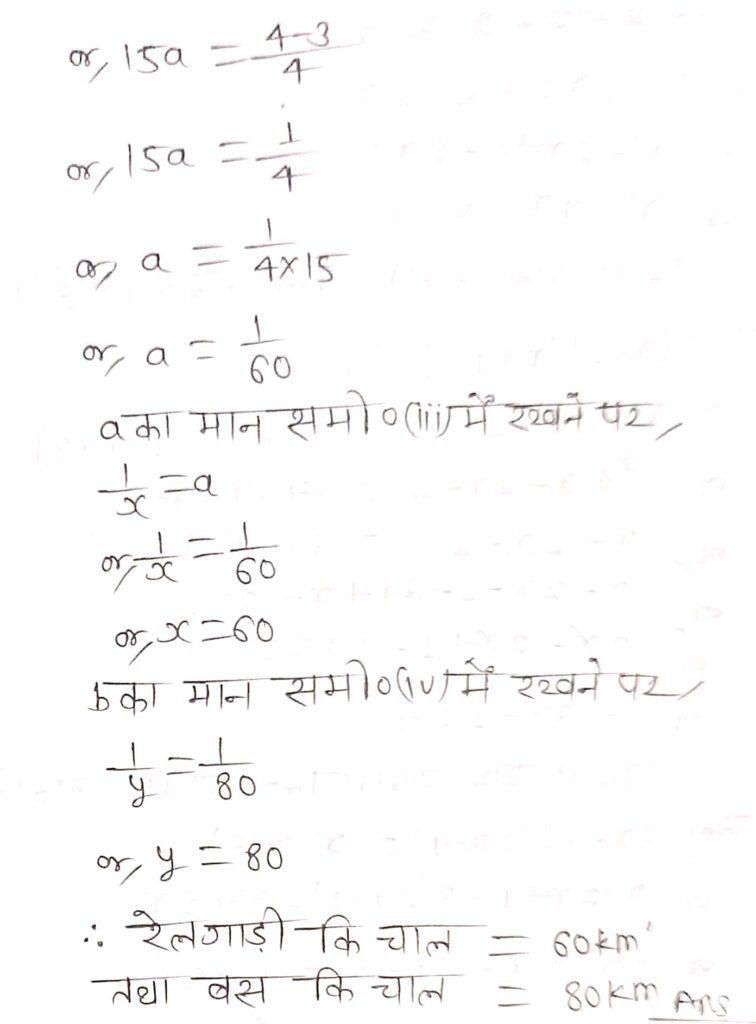 or, 15a = (4-3)/4
or, 15a = 1/4
or, a = 1/(4×15)
or, a = 1/60
a का मान समी०(iii) में रखने पर,
1/x = a
or, 1/x = 1/60
or, x = 60
b का मान समी०(iv) में रखने पर,
1/y = 1/80
or, y = 80
∴ रेलगाड़ी कि चाल = 60km
तथा बस कि चाल = 80km Ans